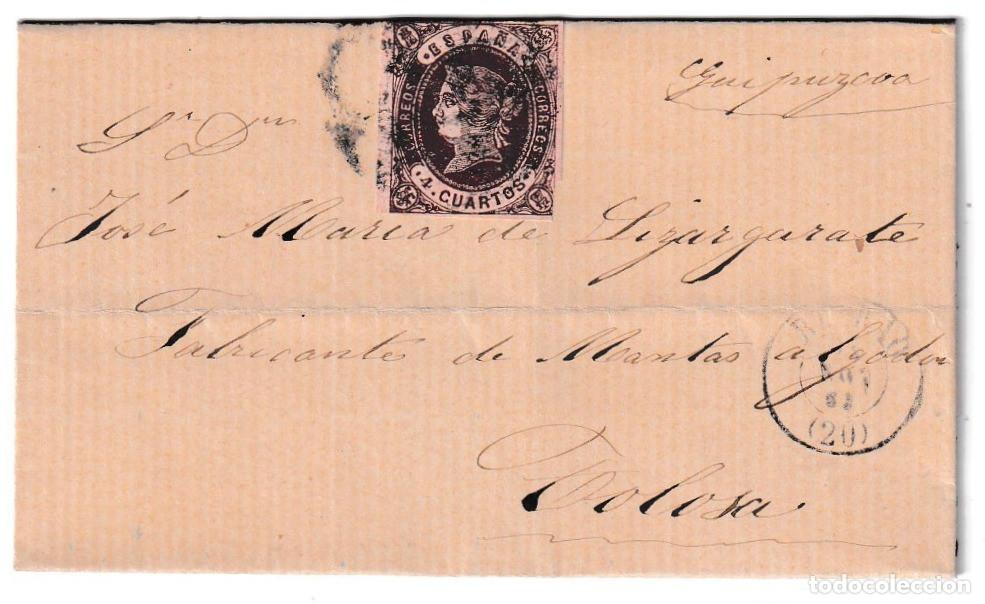 Guipuzcoa
ESPAÑA
CORREOS CORREOS
4. CUARTOS
Sr. Dn
José Maria de Lizargarate
Fabricante de Mantas algodon
(20)
Tolosa
todocoleccion